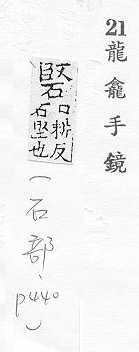 21龍龕手鏡
口耕反
石堅也
(石部、p440)